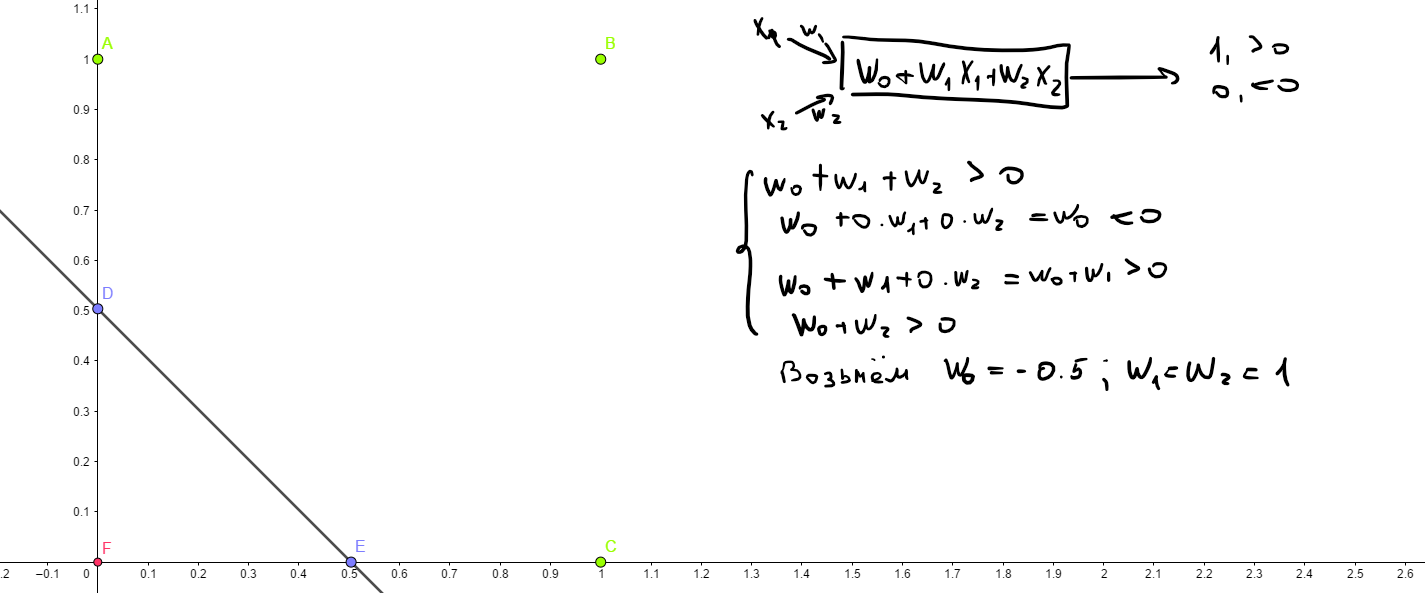 1.1
A
B
1
0.9
0.8
0.7
0.6
D
0.5
0.4
0.3
0.2
0.1
F
E
C
.2 −0.1 0 0.1 0.2 0.3 0.4 0.5 0.6 0.7 0.8 0.9 1 1.1 1.2 1.3 1.4 1.5 1.6 1.7 1.8 1.9 2 2.1 2.2 2.3 2.4 2.5 2.6
x₁ w₁
w₀ + w₁ x₁ + w₂ x₂
x₂ w₂
1, > 0
0, < 0
w₀ + w₁ + w₂ > 0
w₀ + 0 · w₁ + 0 · w₂ = w₀ < 0
w₀ + w₁ + 0 · w₂ = w₀ + w₁ > 0
w₀ + w₂ > 0
Возьмём w₀ = - 0.5 ; w₁ = w₂ = 1